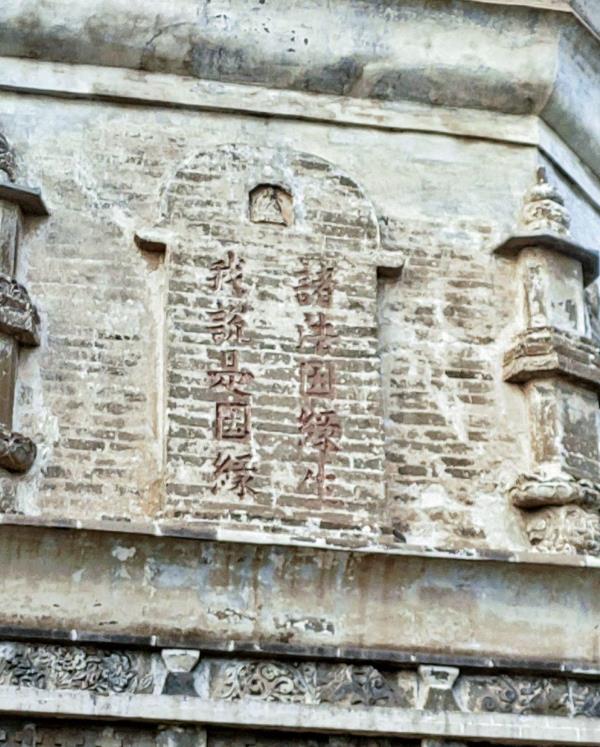 諸法因緣生
我說是因緣